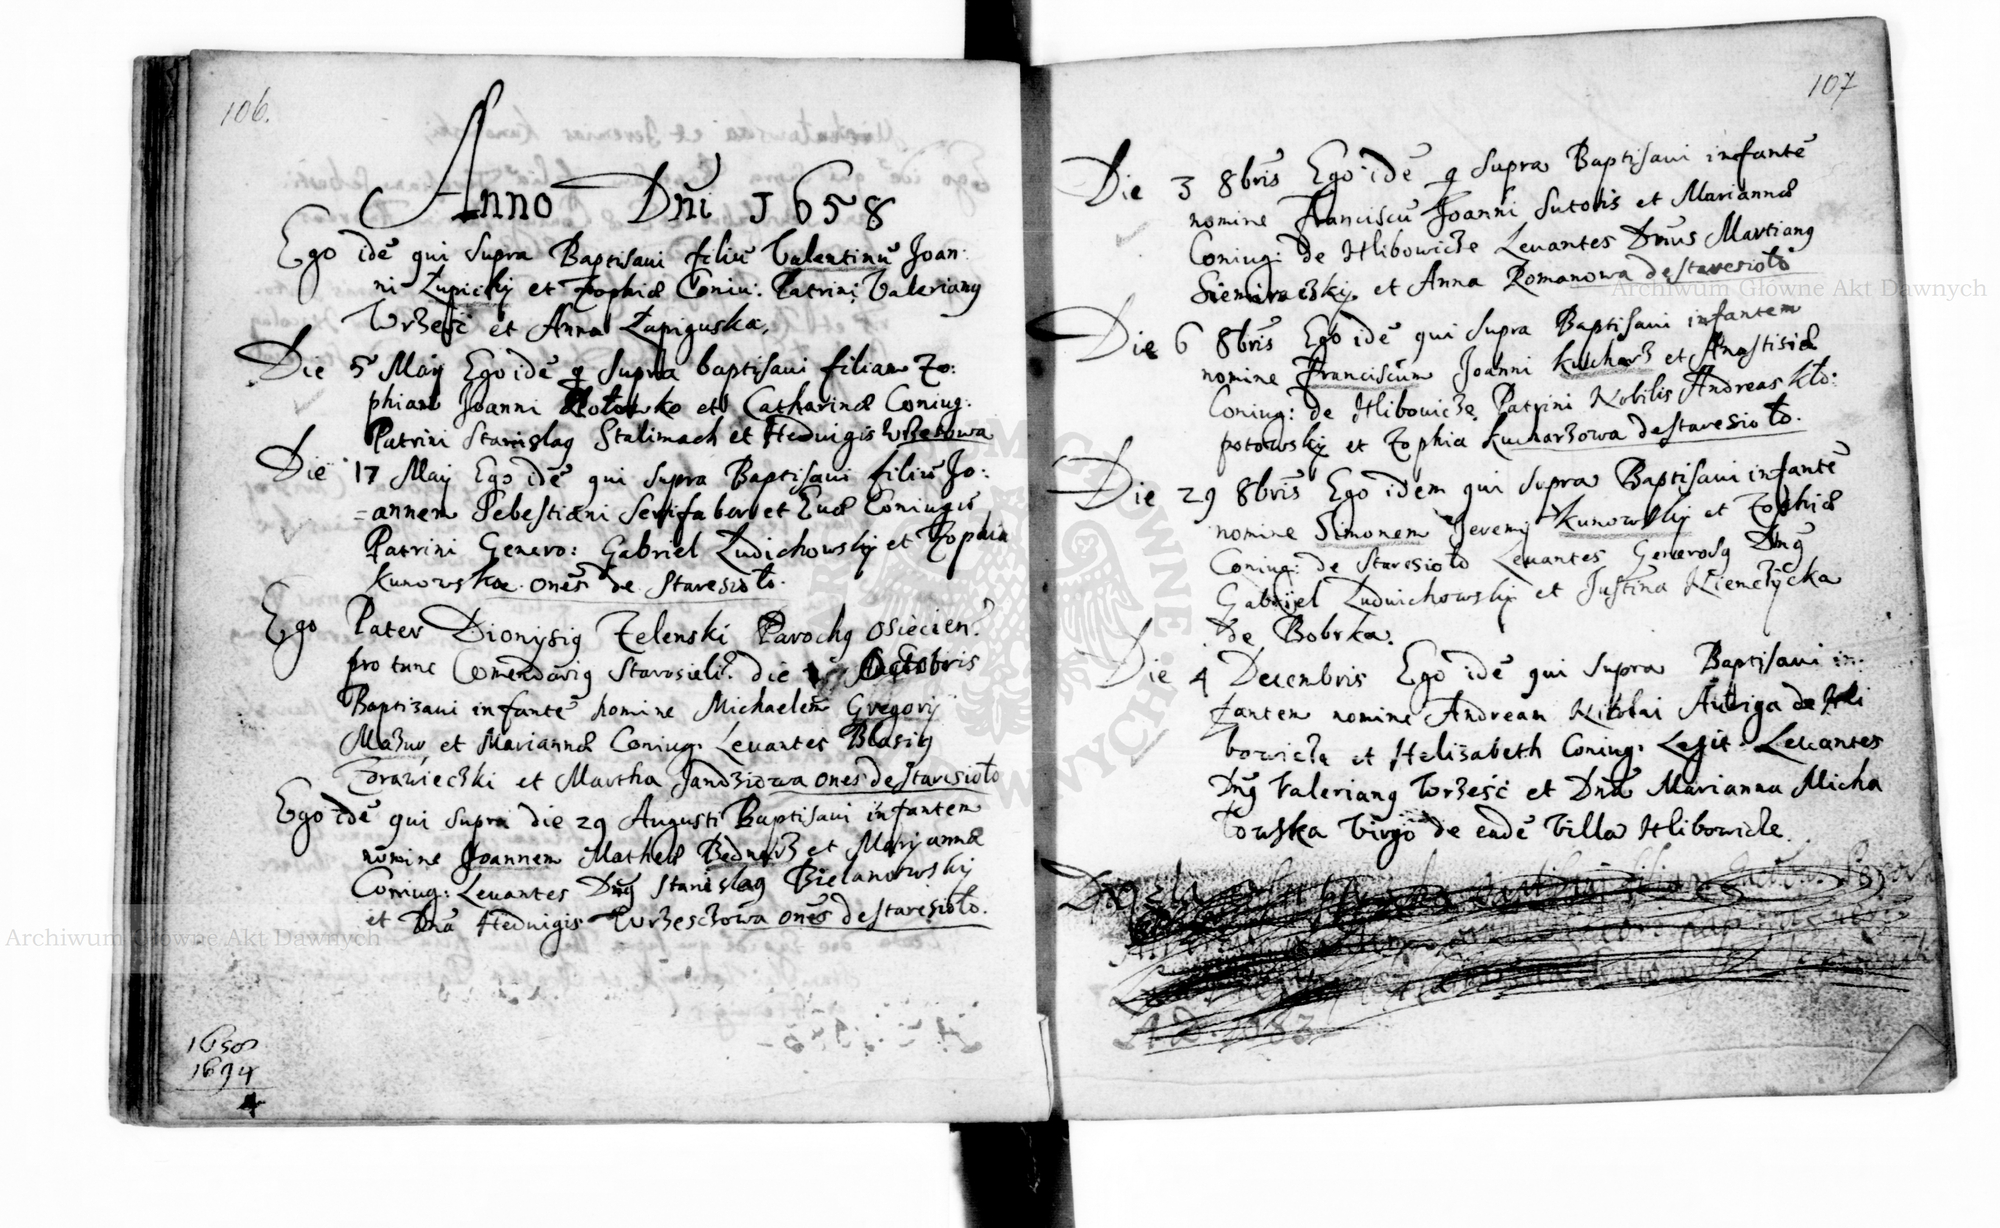 106.
Anno Dn̄i 1658
Ego idē qui supra Baptisaui filiū Valentinū Joan:
ni Łupicky et Zophiæ Coniu: Patrini Valeriang
Wrześć et Anna Łapiguska,
Die 5 Maij Ego idē q supra baptisaui filiam Zo:
phiam Joanni et Catharinæ Coniug:
Patrini Stanislag Stalimach et Hedvigis
Die 17 Maij Ego idē qui supra Baptisaui filiū Jo:
=annem Sebestiani Serifaber et Euæ Coniugis
Patrini Genero: Gabriel Ludichowsky et Zophia
Kunowska onēs de Staresioło.
Ego Pater Dionysig Zelenski Parochg Osiecien?
pro tunc Comēdarig Starosieli? die Octobris
Baptizaui infantē nomine Michaelēm Gregorij
Mazur et Mariannæ Coniug. Leuantes Blasig
Zorawiecki et Martha Jandziowa ones de Staresioło
Ego idē qui supra die 29 Augusti Baptisaui infantem
nomine Joannem Matheæ Bednarz et Maryannæ
Coniug: Leuantes Dn̄g Stanislag Bielanowsky
et Dnā Hedvigis Wrzesczowa onēs de Staresioło.
1658
1694
4
107
Die 3 8bris Ego idē q supra Baptisaui infantē
nomine Franciscū Joanni Sutoris et Mariannæ
Coniug: de Hlibowicze Leuantes Dnus Martiang
Siemiraczky et Anna Romanowa de Staresioło
Die 6 8bris Ego idē qui supra Baptisaui infantem
nomine Franciscum Joanni Kucharz et Anastisiæ
Coniug: de Hlibouicze Patrini Nobilis Andreas Kło:
potowsky et Zophia Kucharzowa de Staresioło.
Die 29 8bris Ego idem qui supra Baptisaui infantē
nomine Simonem Jeremij Kunowsky et Zophiæ
Coniug: de Staresioło Leuantes Generosg Dn̄g
Gabriel Ludwichowsky et Justina
de Bobrka.
Die 4 Decembris Ego idē qui supra Baptisaui in:
fantem nomine Andream Nikolai Auriga de Hli
bowicze et Helizabeth Coniug: Legit. Leuantes
Dn̄g Valeriang Wrześć et Dnā Marianna Micha
łowska Virgo de eadē Villa Hlibowicze.
A D 1683
Archiwum Główne Akt Dawnych
Archiwum Główne Akt Dawnych